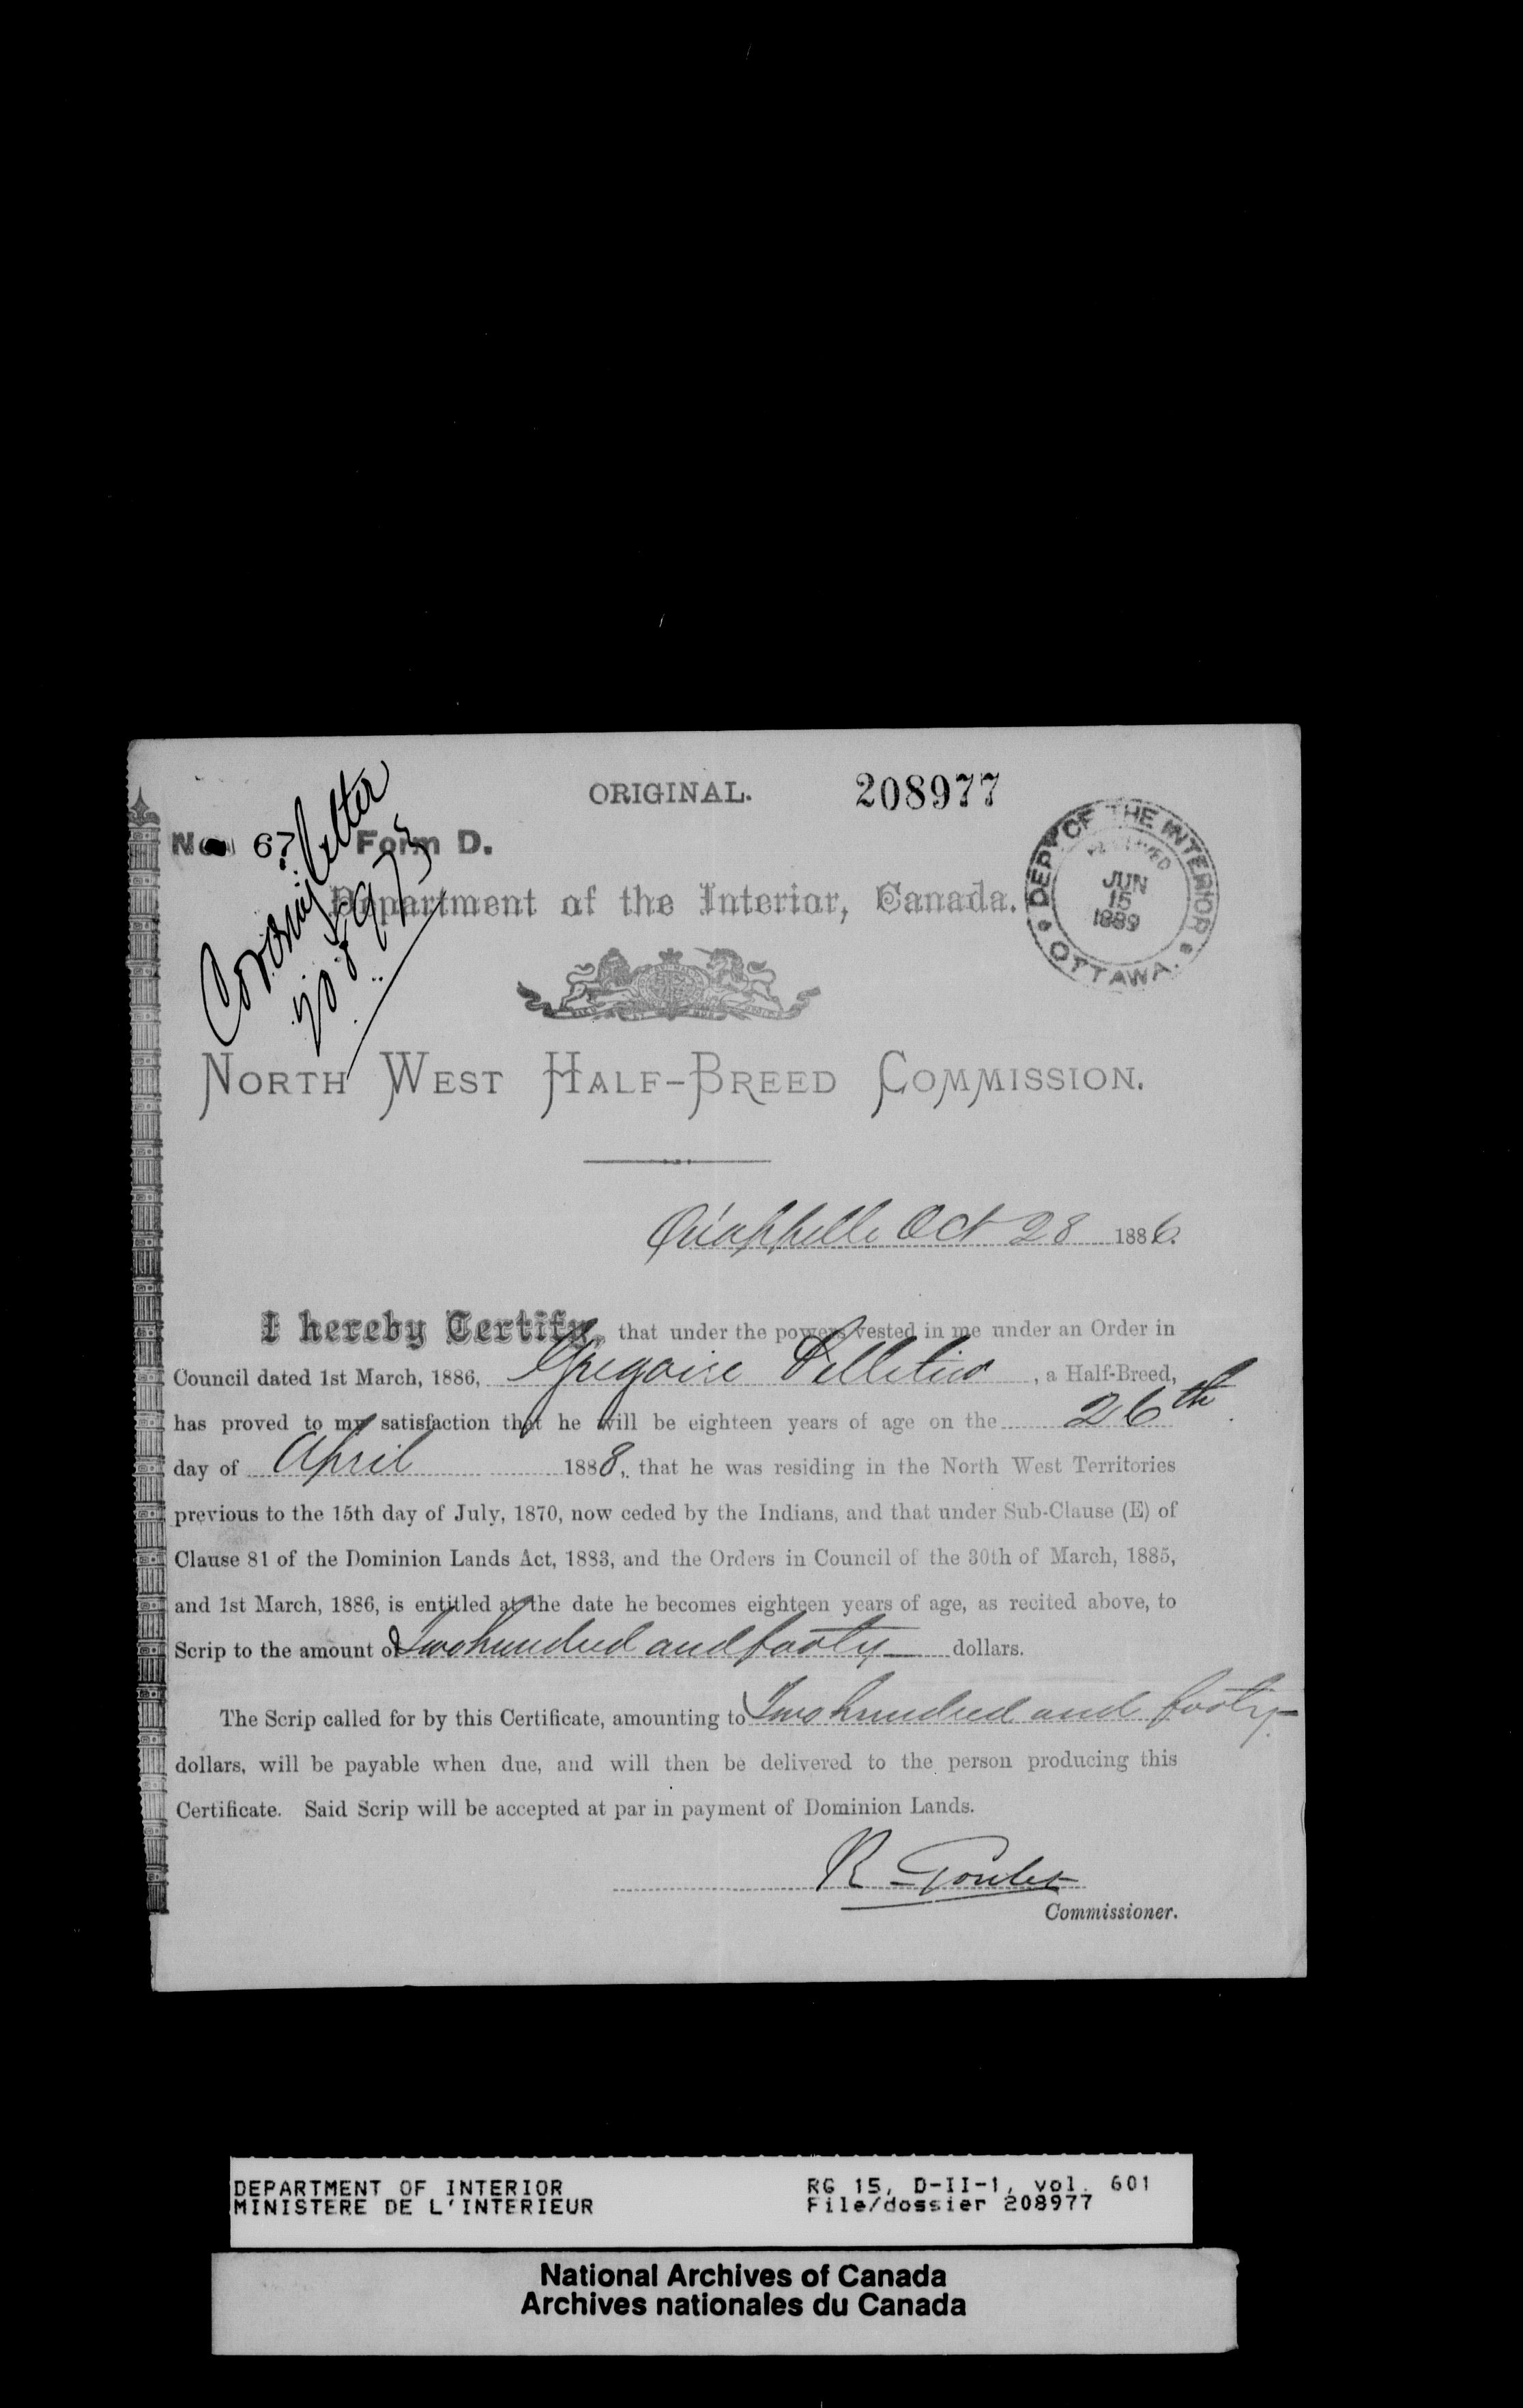 ORIGINAL. 208977
No 67 Form D.
Covering letter
Department of the Interior, Canada.
DEPT OF THE INTERIOR
RECEIVED
JUN
15
1889
OTTAWA.
NORTH WEST HALF-BREED COMMISSION.
Qu'appelle Oct 28 1886.
I hereby Certify, that under the powers vested in me under an Order in
Council dated 1st March, 1886, Gregoire Pelletier, a Half-Breed,
has proved to my satisfaction that he will be eighteen years of age on the 26th
day of April 1888, that he was residing in the North West Territories
previous to the 15th day of July, 1870, now ceded by the Indians, and that under Sub-Clause (E) of
Clause 81 of the Dominion Lands Act, 1883, and the Orders in Council of the 30th of March, 1885,
and 1st March, 1886, is entitled at the date he becomes eighteen years of age, as recited above, to
Scrip to the amount of Two hundred and forty dollars.
The Scrip called for by this Certificate, amounting to Two hundred and forty
dollars, will be payable when due, and will then be delivered to the person producing this
Certificate. Said Scrip will be accepted at par in payment of Dominion Lands.
R Goulet
Commissioner.
DEPARTMENT OF INTERIOR RG 15, D-II-1, vol. 601
MINISTERE DE L'INTERIEUR File/dossier 208977
National Archives of Canada
Archives nationales du Canada